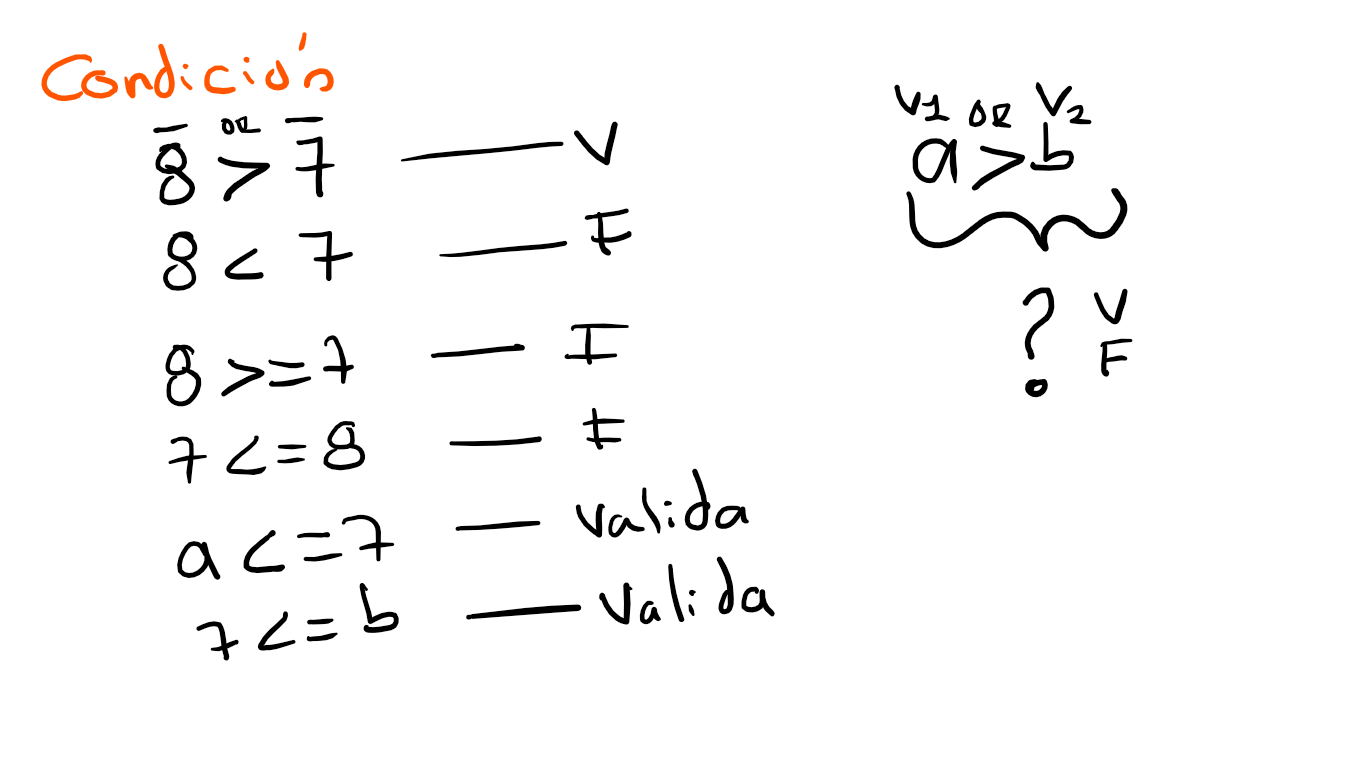 Condición
OR
8 > 7 — V
8 < 7 — F
8 >= 7 — I
7 <= 8 — F
a <= 7 — valida
7 <= b — valida
V1 OR V2
a > b
? V
F